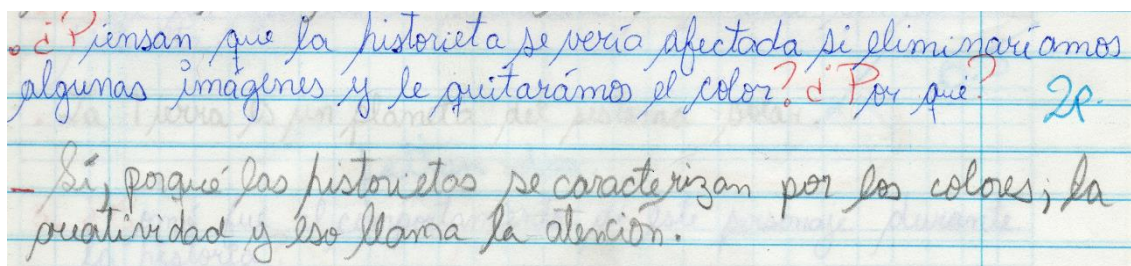 . ¿Piensan que la historieta se vería afectada si eliminaríamos
algunas imágenes y le quitarámos el color? ¿Por qué? 2P.
- Sí, porqué las historietas se caracterizan por los colores; la
creatividad y eso llama la atención.